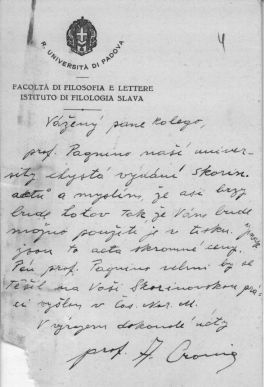 4
R. UNIVERSITÀ DI PADOVA
FACOLTÀ DI FILOSOFIA E LETTERE
ISTITUTO DI FILOLOGIA SLAVA
Vážený pane kolego,
prof. Pagnino naší univer-
sity chystá vydání Skorin.
actů a myslím, že asi brzy
bude hotov tak, že Vám bude
možno použíti je v tisku.
jsou to acta skromné ceny,
prof. Pagnino velmi by se
těšil na Vaši Skorinovskou prá-
ci vyšlou v čas. Nar. M.
V výrazem dokonalé úcty
prof. A. Cronia